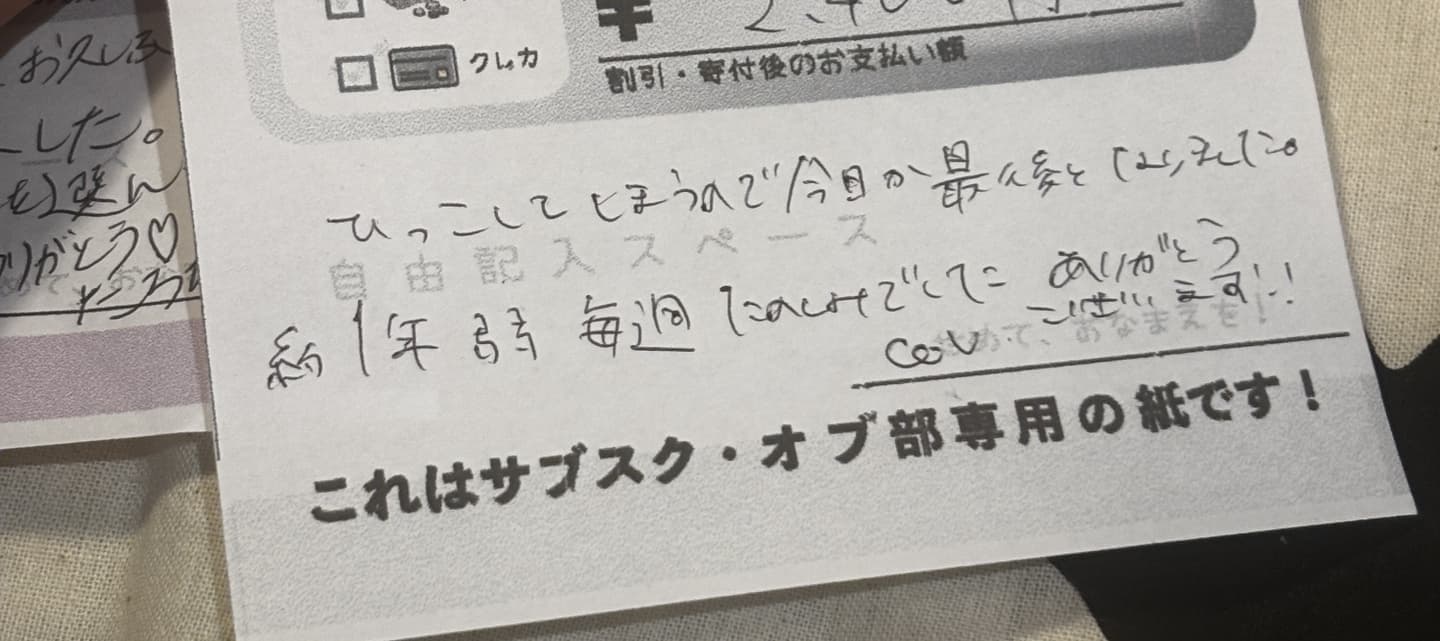 お久しぶ
した。
を選ん
りがとう♡
クレカ
¥ 2,400
割引・寄付後のお支払い額
ひっこしてしまうので今日が最後となりました。
自由記入スペース
約1年弱 毎週 たのしみでした ありがとう
ございます!!
きめて、おなまえを!
これはサブスク・オブ部専用の紙です!